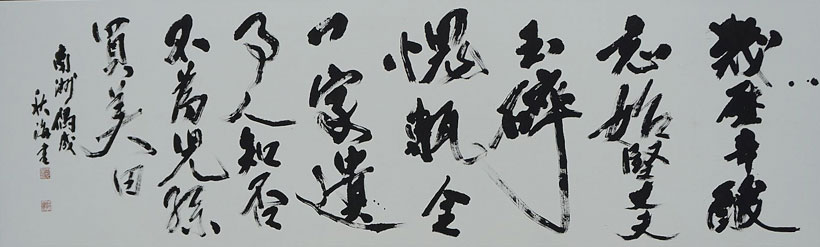 幾歴辛酸
志始堅丈夫
玉砕
愧甎全
一家遺
事人知否
不為児孫
買美田
南洲偶成
秋海書